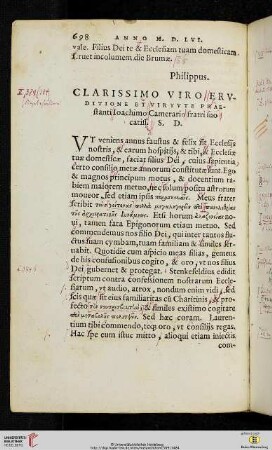 698 ANNO M. D. LVI.
vale. Filius Dei te & Ecclesiam tuam domesticam
seruet incolumem. die Brumæ.
Philippus.
CLARISSIMO VIRO ERV-
DITIONE ET VIRTVTE PRAE-
stanti Ioachimo Camerario fratri suo
cariss. S. D.
VT veniens annus faustus & felix sit Ecclesiæ
nostræ, & earum hospitijs, & tibi & Ecclesiæ
tuæ domesticæ, faciat filius Dei, cuius sapientia
certo consilio metæ annorum constitutæ sunt. Ego
& magnos principum motus, & docentium ra-
biem maiorem metuo, nec solum positu astrorum
moueor, sed etiam Meus frater
scribit
Etsi horum no-
ui, tamen fata Epigonorum etiam metuo. Sed
commendemus nos filio Dei, qui inter tantos flu-
ctus suam cymbam, tuam familiam & similes ser-
uabit. Quotidie cum aspicio meas filias, gemens
de his confusionibus cogito, & oro, vt nos filius
Dei gubernet & protegat. Stenkefeldius edidit
scriptum contra confessionem nostrarum Eccle-
siarum, vt audio, atrox, nondum enim vidi, sed
scis quæ sit eius familiaritas &
fecto & similes existimo cogitare
Sed hæc coram. Lauren-
tium tibi commendo, teq; oro, vt consilijs regas.
Hac spe cum istuc mitto, alioqui etiam iniectis
com-